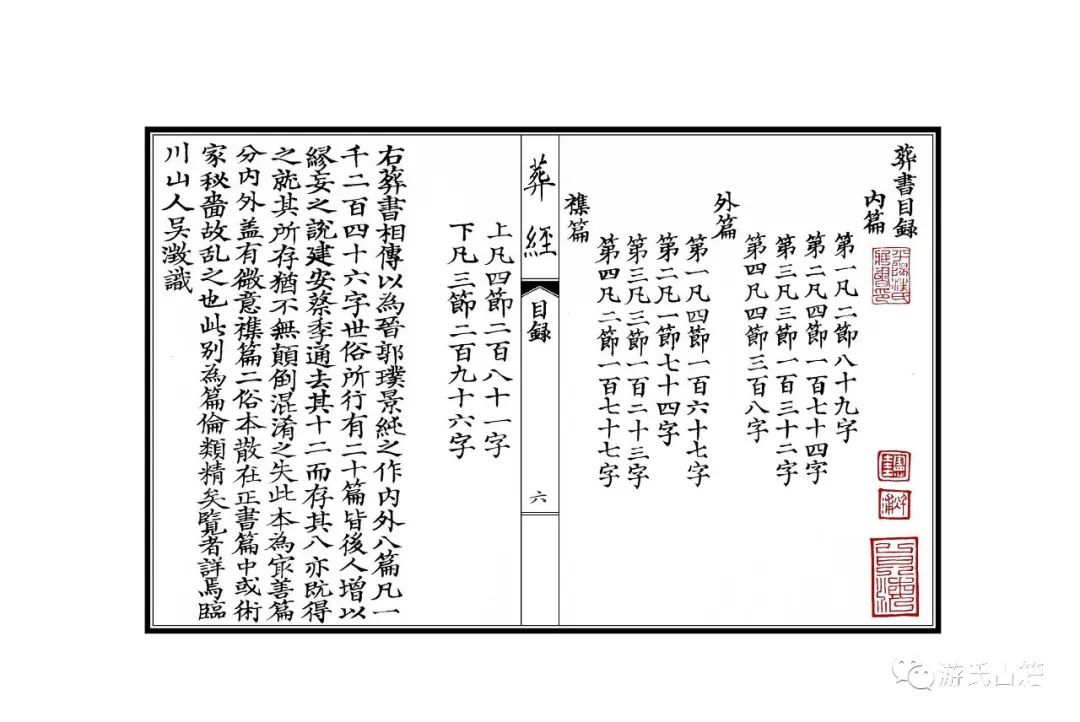 葬書目録
内篇
第一凡二節八十九字
第二凡四節一百七十四字
第三凡三節一百三十二字
第四凡四節三百八字
外篇
第一凡四節一百六十七字
第二凡一節七十四字
第三凡三節一百二十三字
第四凡二節一百七十七字
襍篇
葬經
目録
六
上凡四節二百八十一字
下凡三節二百九十六字
右葬書相傳以為晉郭璞景純之作内外八篇凡一
千二百四十六字世俗所行有二十篇皆後人增以
繆妄之說建安蔡季通去其十二而存其八亦既得
之就其所存猶不無顛倒混淆之失此本為㝡善篇
分内外盖有微意襍篇二俗本散在正書篇中或術
家秘嗇故乱之也此别為篇倫類精矣覽者詳焉臨
川山人吴澂識
游氏山笔